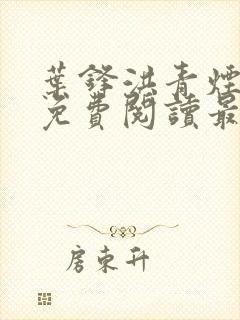 葉鋒洪青煙
免費閱讀最
房東升